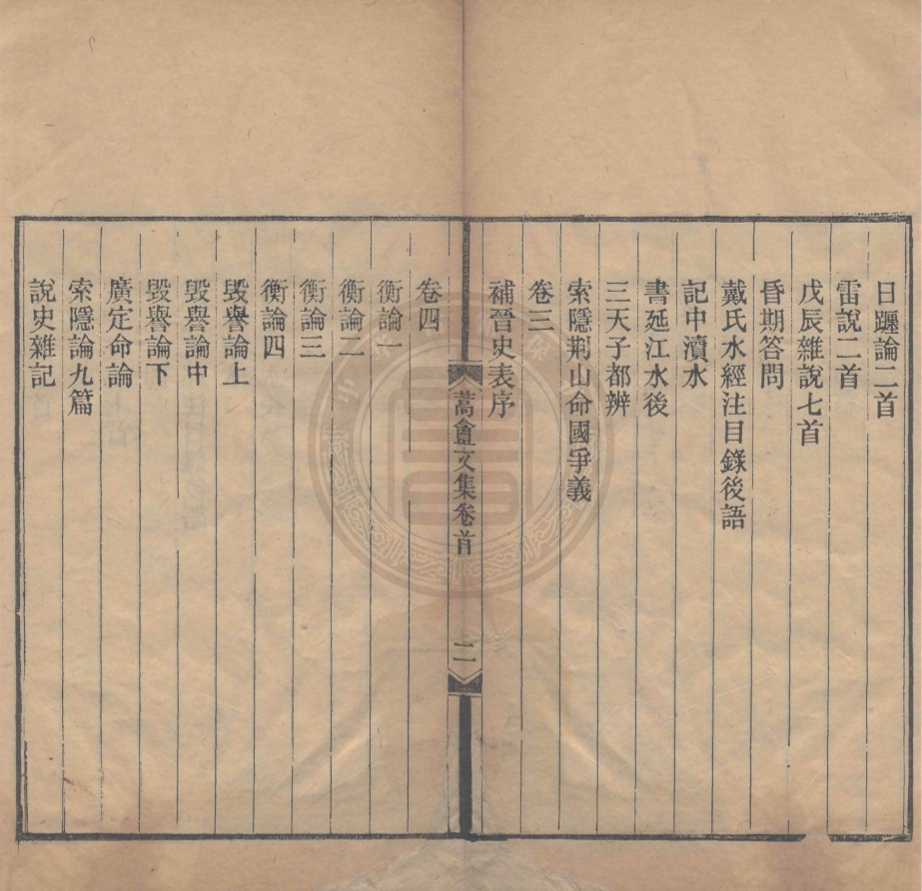 日躔論二首
雷說二首
戊辰雜說七首
昏期答問
戴氏水經注目錄後語
記中瀆水
書延江水後
三天子都辨
索隱荆山命國爭義
卷三
補晉史表序
蒿盦文集卷首
二
卷四
衡論一
衡論二
衡論三
衡論四
毁譽論上
毁譽論中
毁譽論下
廣定命論
索隱論九篇
說史雜記